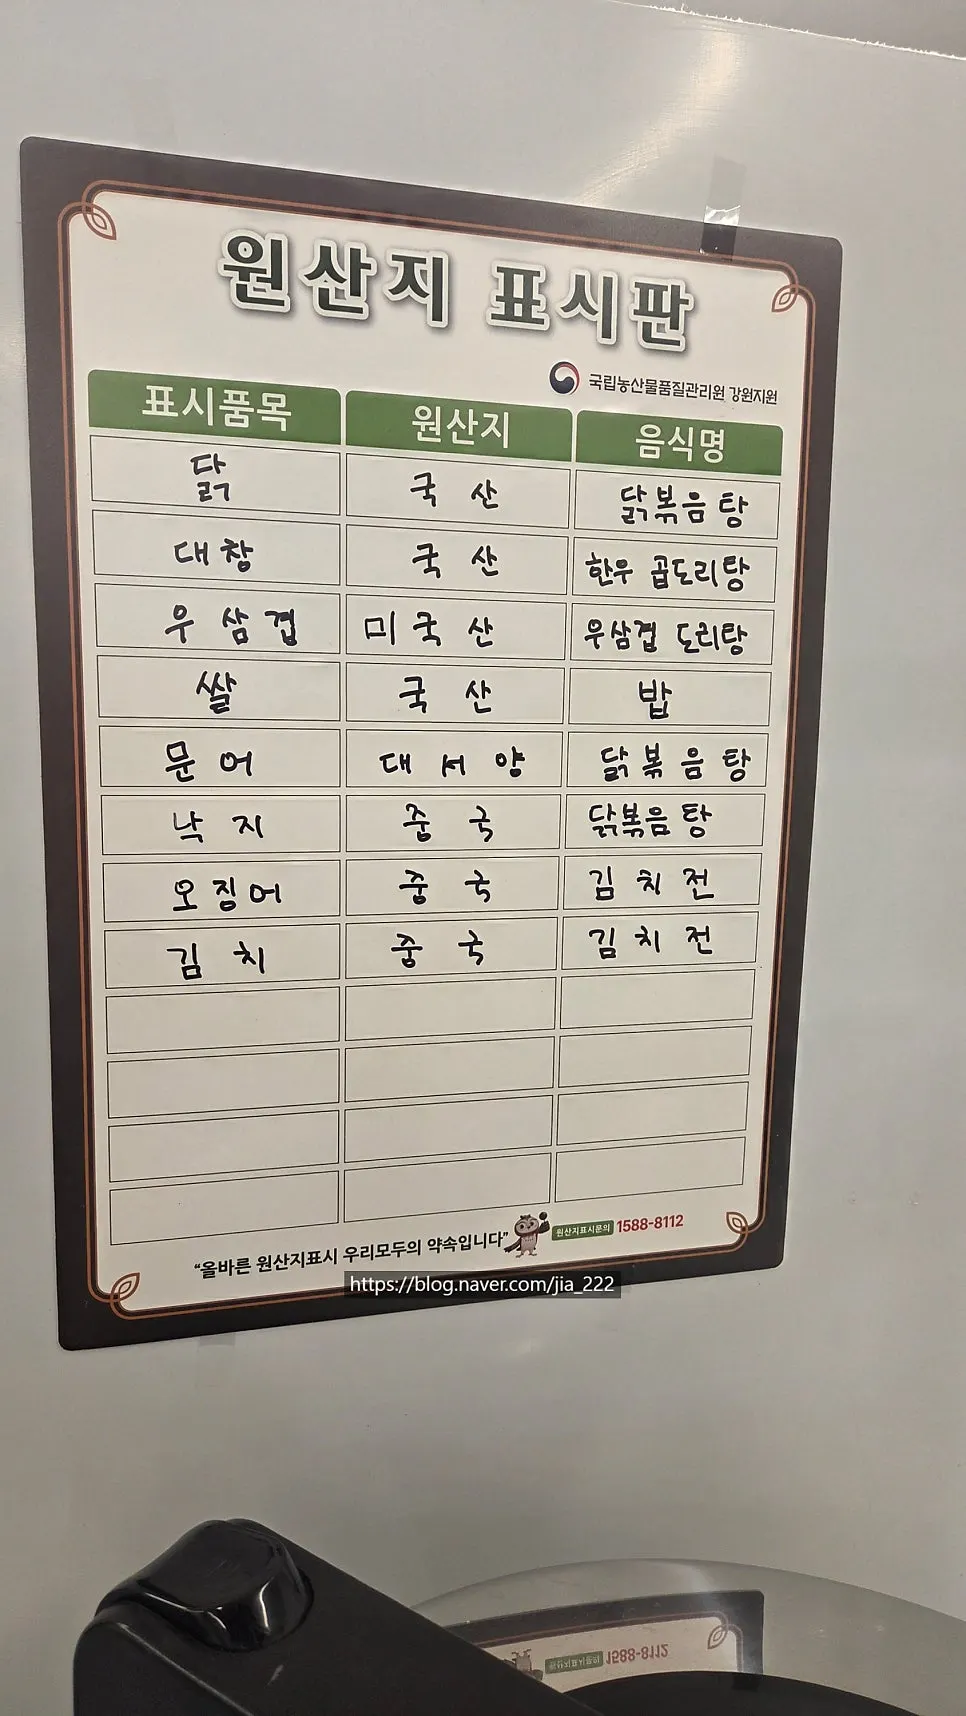 원산지 표시판
국립농산물품질관리원 강원지원
표시품목 원산지 음식명
닭 국산 닭볶음탕
대창 국산 한우 곱도리탕
우삼겹 미국산 우삼겹 도리탕
쌀 국산 밥
문어 대서양 닭볶음탕
낙지 중국 닭볶음탕
오징어 중국 김치전
김치 중국 김치전
"올바른 원산지표시 우리모두의 약속입니다" 원산지표시문의 1588-8112
https://blog.naver.com/jia_222
원산지표시문의 1588-8112